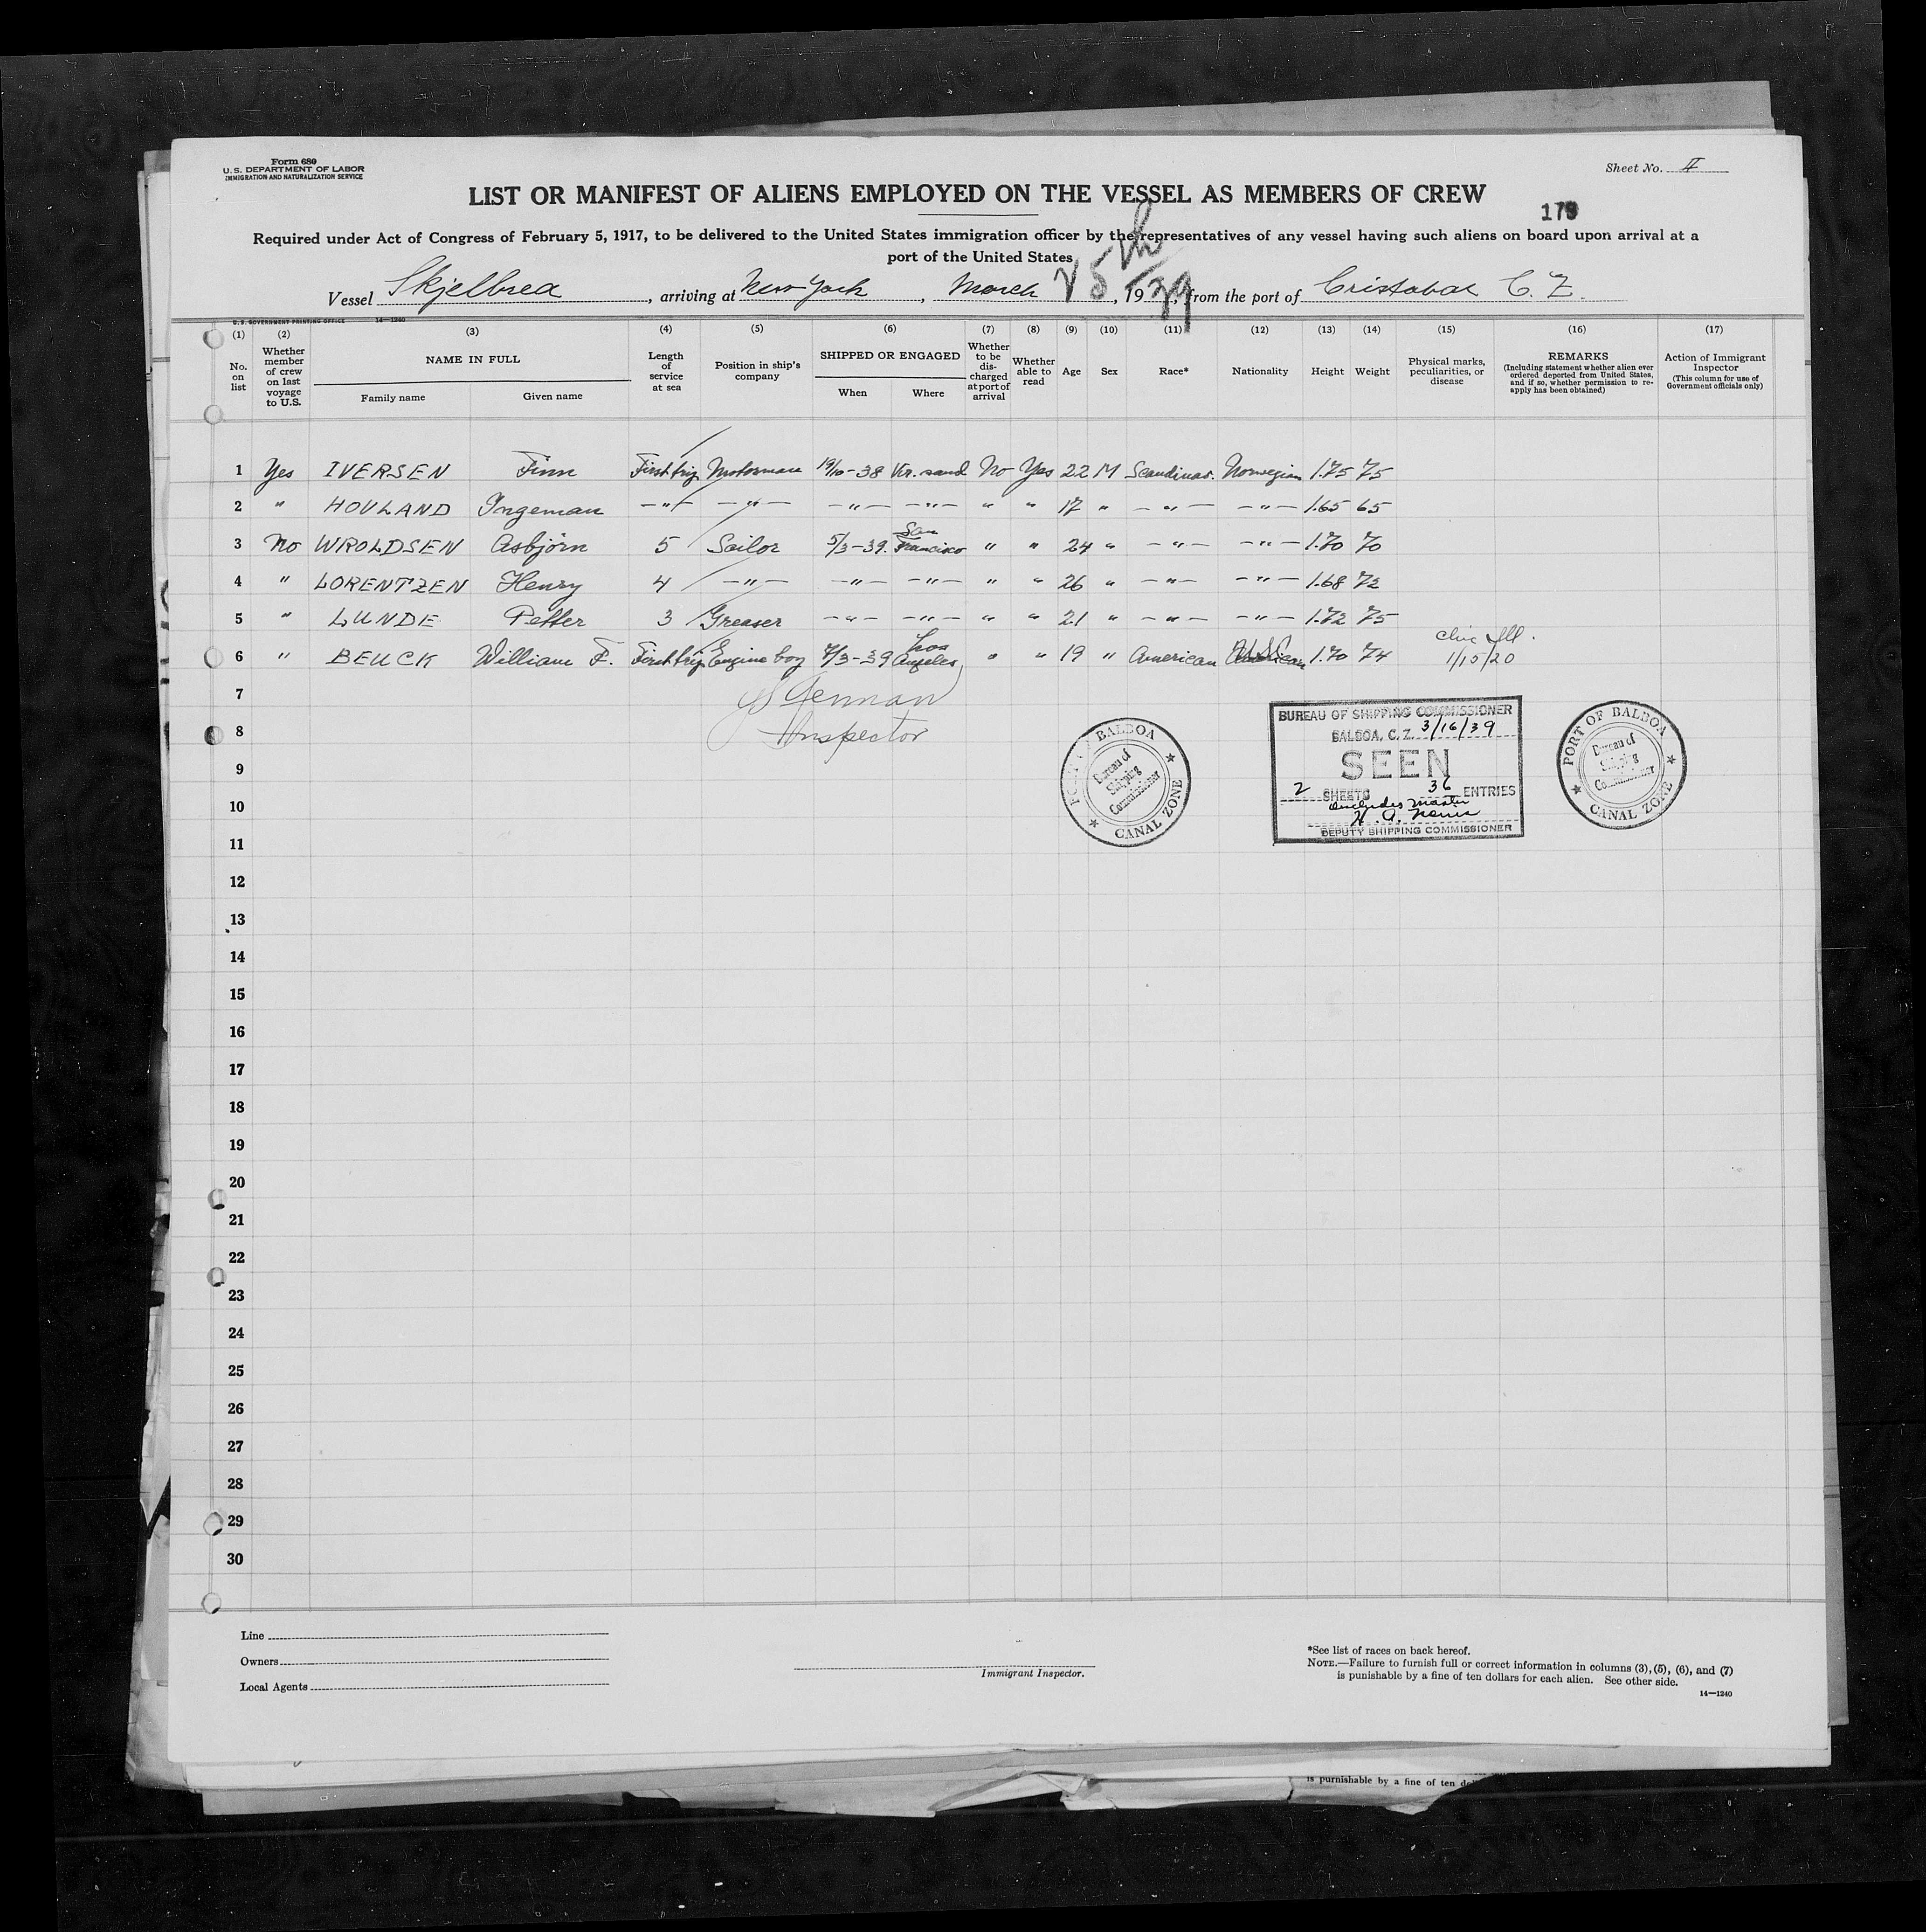 Form 680
U. S. DEPARTMENT OF LABOR
IMMIGRATION AND NATURALIZATION SERVICE
Sheet No. II
LIST OR MANIFEST OF ALIENS EMPLOYED ON THE VESSEL AS MEMBERS OF CREW
179
Required under Act of Congress of February 5, 1917, to be delivered to the United States immigration officer by the representatives of any vessel having such aliens on board upon arrival at a
port of the United States
Vessel Skjelbred, arriving at New York, March 25th, 1939, from the port of Cristobal C. Z.
U. S. GOVERNMENT PRINTING OFFICE 14—1240
(1) (2) (3) (4) (5) (6) (7) (8) (9) (10) (11) (12) (13) (14) (15) (16) (17)
No. on list
Whether member of crew on last voyage to U.S.
NAME IN FULL
Family name
Given name
Length of service at sea
Position in ship's company
SHIPPED OR ENGAGED
When
Where
Whether to be discharged at port of arrival
Whether able to read
Age
Sex
Race*
Nationality
Height
Weight
Physical marks, peculiarities, or disease
REMARKS
(Including statement whether alien ever ordered deported from United States, and if so, whether permission to reapply has been obtained)
Action of Immigrant Inspector
(This column for use of Government officials only)
1 Yes IVERSEN Finn First trip Motorman 19/10-38 Kr. sand No Yes 22 M Scandinav. Norwegian 1.75 75
2 " HOVLAND Ingeman —"— —"— —"— —"— " " 17 " —"— —"— 1.65 65
3 No WROLDSEN Asbjörn 5 Sailor 5/3-39. San Francisco " " 24 " —"— —"— 1.70 70
4 " LORENTZEN Henry 4 —"— —"— —"— " " 26 " —"— —"— 1.68 72
5 " LUNDE Petter 3 Greaser —"— —"— " " 21 " —"— —"— 1.72 75
6 " BEUCK William F. First trip Engine boy 7/3-39 Los Angeles " " 19 " American USC 1.70 74 Ill. 1/15/20
7
Inspector
8
9
10
11
12
13
14
15
16
17
18
19
20
21
22
23
24
25
26
27
28
29
30
PORT OF BALBOA
Bureau of Shipping Commissioner
CANAL ZONE
BUREAU OF SHIPPING COMMISSIONER
BALBOA, C. Z. 3/16/39
SEEN
2 SHEETS 36 ENTRIES
includes master
DEPUTY SHIPPING COMMISSIONER
PORT OF BALBOA
Bureau of Shipping Commissioner
CANAL ZONE
Line
Owners
Local Agents
Immigrant Inspector.
*See list of races on back hereof.
NOTE.—Failure to furnish full or correct information in columns (3), (5), (6), and (7)
is punishable by a fine of ten dollars for each alien. See other side.
14—1240
is punishable by a fine of ten